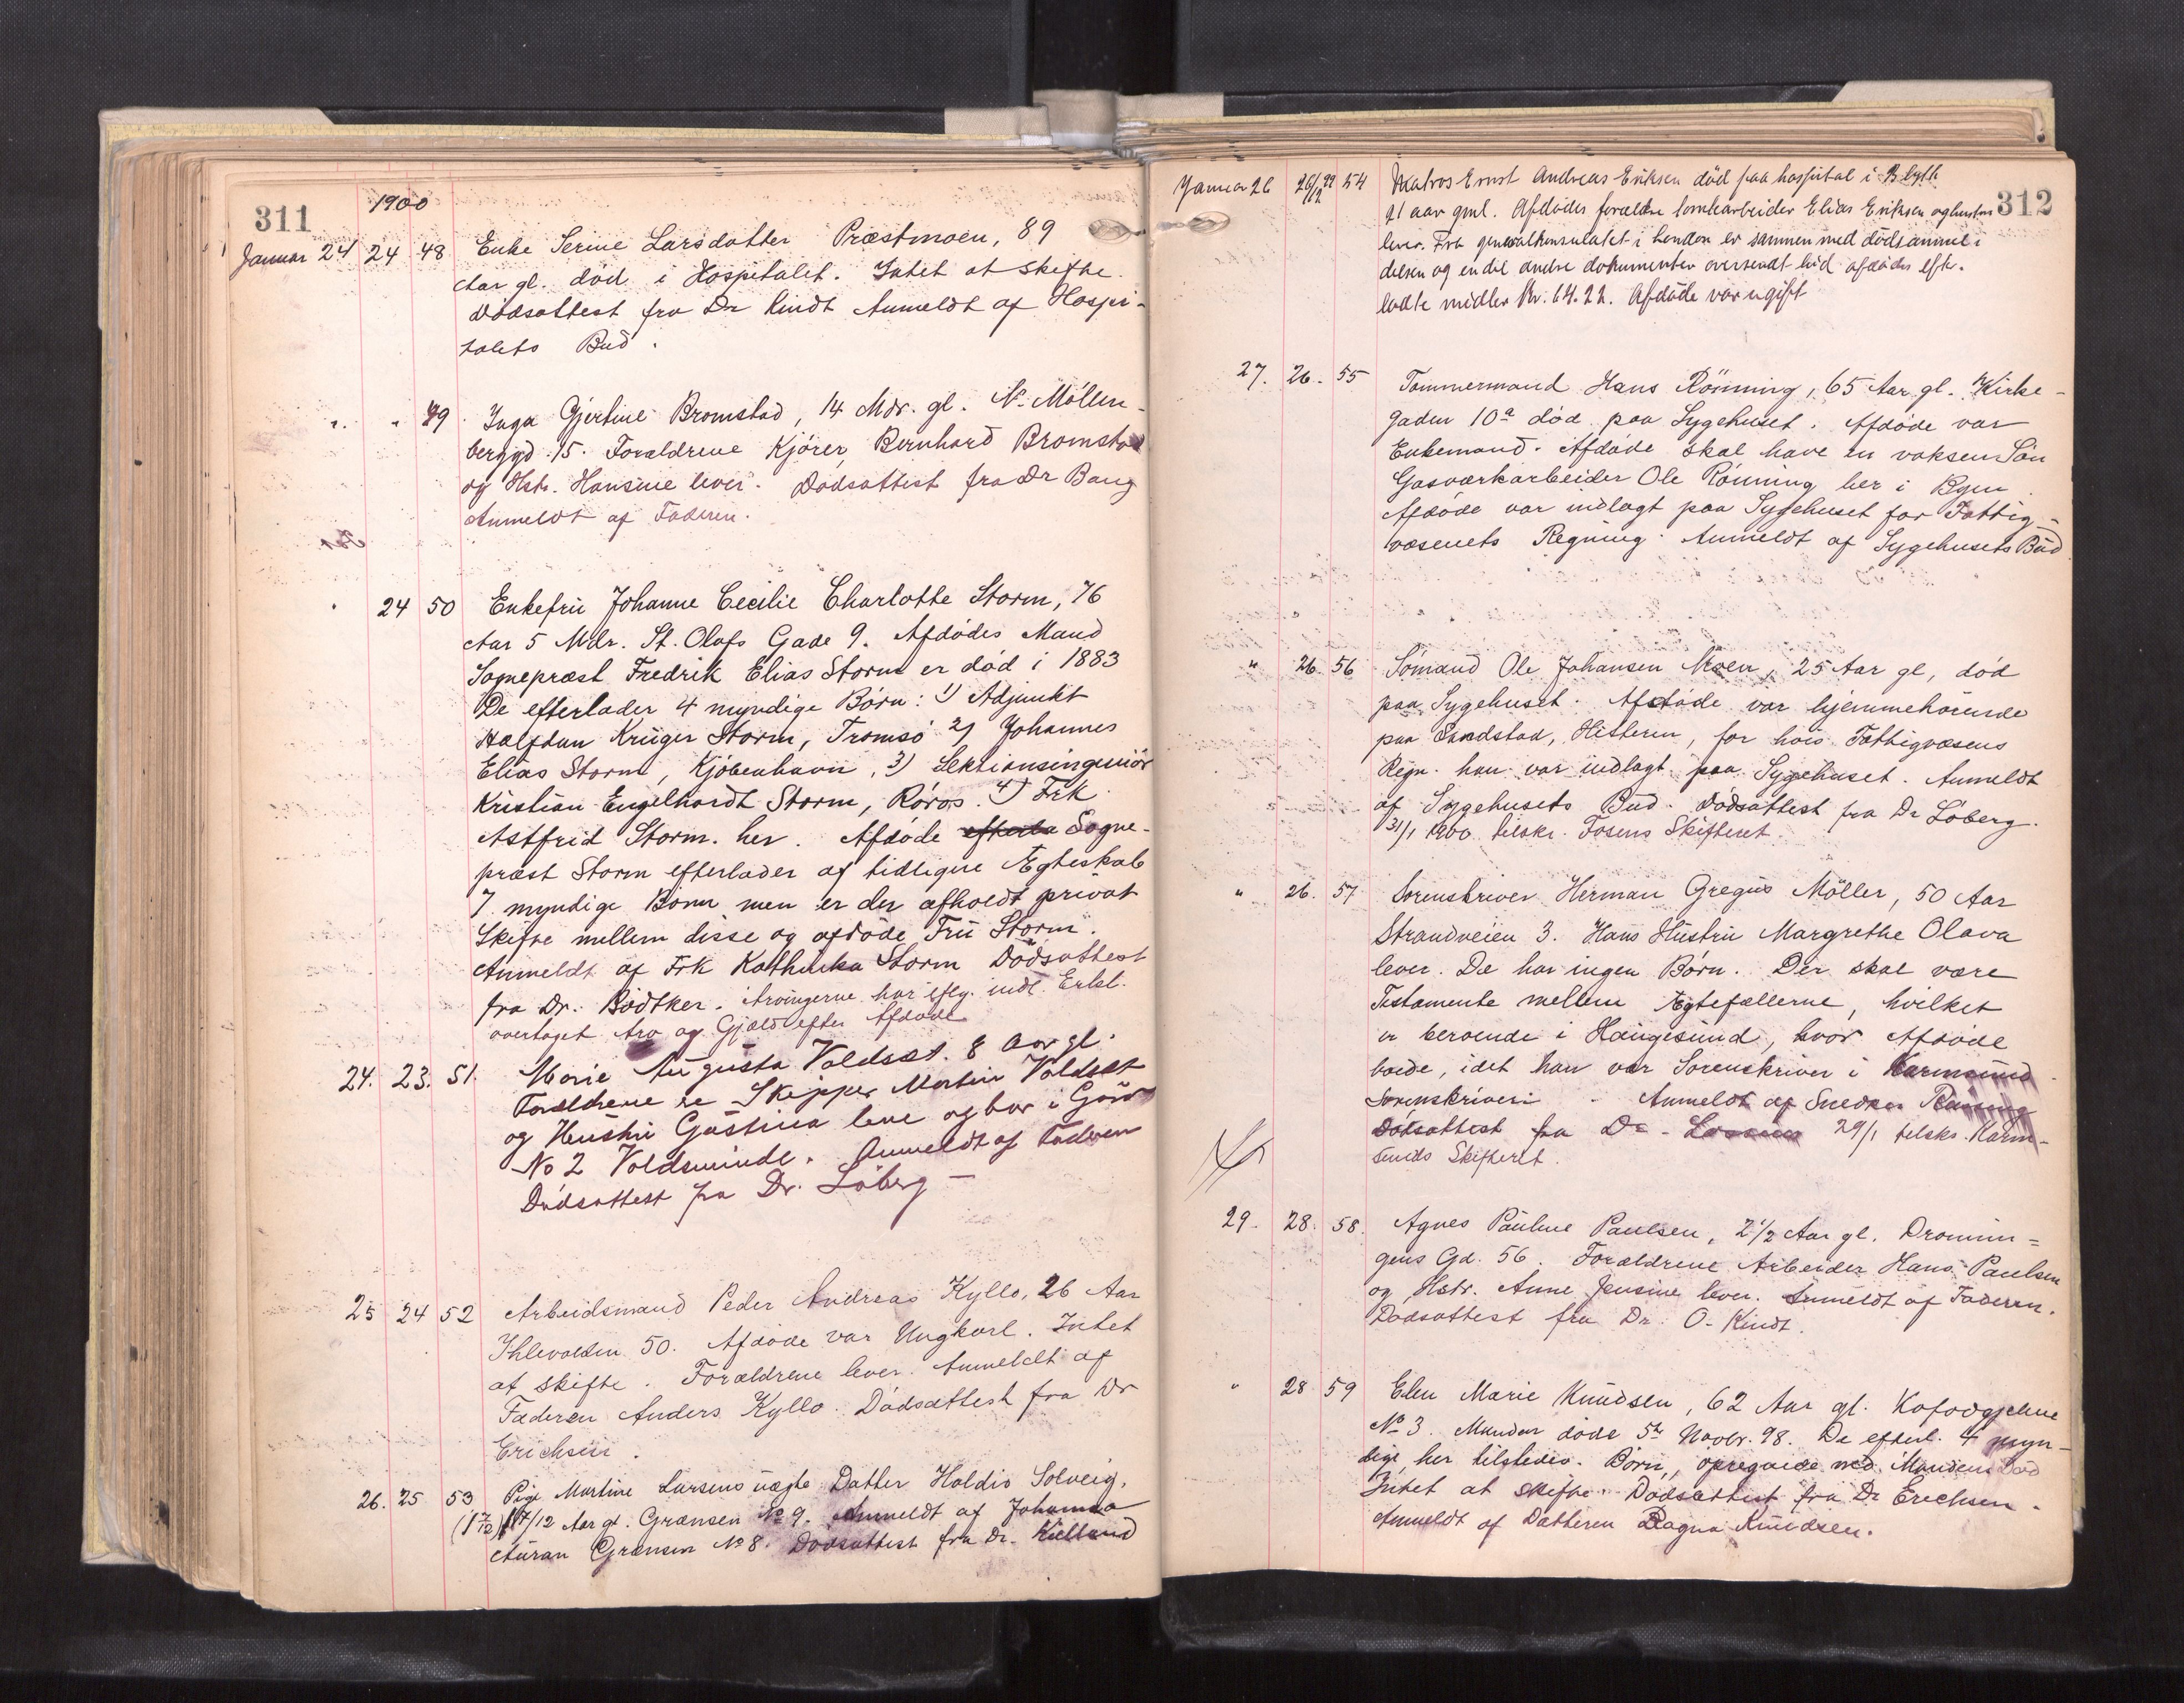 311
1900
Januar 24 24 48 Enke Serine Larsdatter Præstmoen, 89
Aar gl. död i Hospitalet. Intet at skifte.
Dödsattest fra Dr Kindt Anmeldt af Hospi-
talets Bud.
". " 49 Inga Gjertine Bromstad, 14 Mdr. gl. N. Möllen-
berggd. 15. Forældrene Kjörer Bernhard Bromstad
og Hstr. Hansine lever. Dödsattest fra Dr Bang
Anmeldt af Faderen.
" 24 50 Enkefru Johanne Cecilie Charlotte Storm, 76
Aar 5 Mdr. St. Olafs Gade 9. Afdödes Mand
Sognepræst Fredrik Elias Storm er död i 1883
De efterlader 4 myndige Börn: 1) Adjunkt
Halfdan Krüger Storm, Tromsö 2) Johannes
Elias Storm, Kjöbenhavn, 3) Sektionsingeniör
Kristian Engelhardt Storm, Röros. 4) Frk.
Astfrid Storm. her. Afdöde efterla Sogne-
præst Storm efterlader af tidligere Ægteskab
7 myndige Börn men er der afholdt privat
Skifte mellem disse og afdöde Fru Storm.
Anmeldt af Frk Kathinka Storm Dödsattest
fra Dr. Bödtker. Arvingerne har iflg. indl. Erkl.
overtaget Arv og Gjæld efter Afdöde
24. 23. 51. Marie Augusta Voldsæt. 8 Aar gl.
Forældrene er Skipper Martin Voldsæt
og Hustru Gustava leve og bor i Gaard
No 2 Voldsminde. Anmeldt af Faderen
Dödsattest fra Dr. Löberg –
25 24 52 Arbeidsmand Peder Andreas Kyllo, 26 Aar
Ihlevolden 50. Afdöde var Ungkarl. Intet
at skifte. Forældrene lever. Anmeldt af
Faderen Anders Kyllo. Dödsattest fra Dr
Erichsen.
26. 25 53 Pige Martine Larsens uægte Datter Haldis Solveig,
(1 7/12) 1 7/12 Aar gl. Grænsen No 9. Anmeldt af Johanna
Auran Grænsen No 8. Dödsattest fra Dr. Kielland
312
Januar 26 26/12 99 54 Matros Ernst Andreas Eriksen död paa hospital i Blyth
21 aar gml. Afdödes forældre tomtearbeider Elias Eriksen og hustru
lever. Fra generalkonsulatet i London er sammen med dödsanmel-
delsen og en del andre dokumenter oversendt hid afdödes efter-
ladte midler Kr. 64.22. Afdöde var ugift
27. 26. 55 Tömmermand Hans Rönning, 65 Aar gl. Kirke-
gaden 10a död paa Sygehuset. Afdöde var
Enkemand. Afdöde skal have en voksen Sön
Gasværkarbeider Ole Rönning her i Byen.
Afdöde var indlagt paa Sygehuset for Fattig-
væsenets Regning. Anmeldt af Sygehusets Bud
" 26. 56 Sömand Ole Johansen Moen, 25 Aar gl, död
paa Sygehuset. Afdöde var hjemmehörende
paa Sandstad, Hitteren, for hvis Fattigvæsens
Regn. han var indlagt paa Sygehuset. Anmeldt
af Sygehusets Bud. Dödsattest fra Dr Löberg.
31/1 1900 tilskr. Fosens Skifteret.
" 26. 57 Sorenskriver Herman Gregus Möller, 50 Aar
Strandveien 3. Hans Hustru Margrethe Olava
lever. De har ingen Börn. Der skal være
Testamente mellem Ægtefællerne, hvilket
er beroende i Haugesund, hvor Afdöde
boede, idet han var Sorenskriver i Karmsund
Sorenskriveri. Anmeldt af Snedker
Dödsattest fra Dr. 29/1 tilskr. Karm-
sunds Skifteret.
29. 28. 58. Agnes Pauline Paulsen, 2 1/2 Aar gl. Dronnin=
gens Gd. 56. Forældrene Arbeider Hans Paulsen
og Hstr. Anne Jensine lever. Anmeldt af Faderen.
Dödsattest fra Dr. O. Kindt.
" 28 59 Elen Marie Knudsen, 62 Aar gl. Kofodgjelene
No 3. Manden döde 5te Novbr. 98. De efterl. 4 myn-
dige, her tilstedev. Börn, opregnede ved Mandens Död
Intet at skifte. Dödsattest fra Dr Erichsen.
Anmeldt af Datteren Ragna Knudsen.